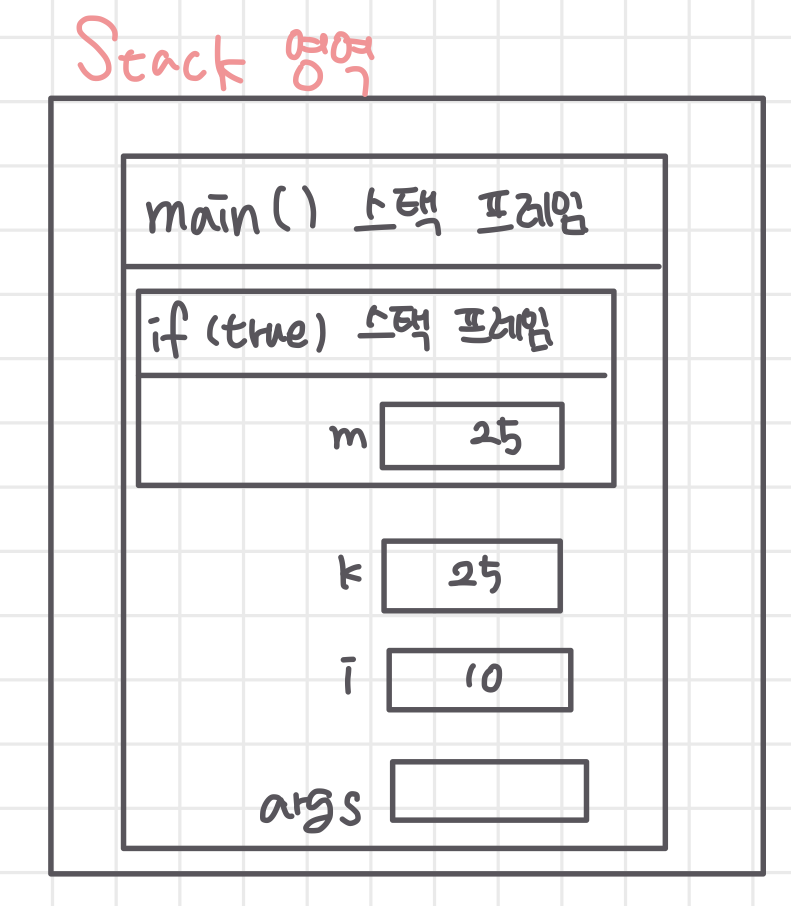 Stack 영역
main() 스택 프레임
if (true) 스택 프레임
m 25
k 25
i 10
args